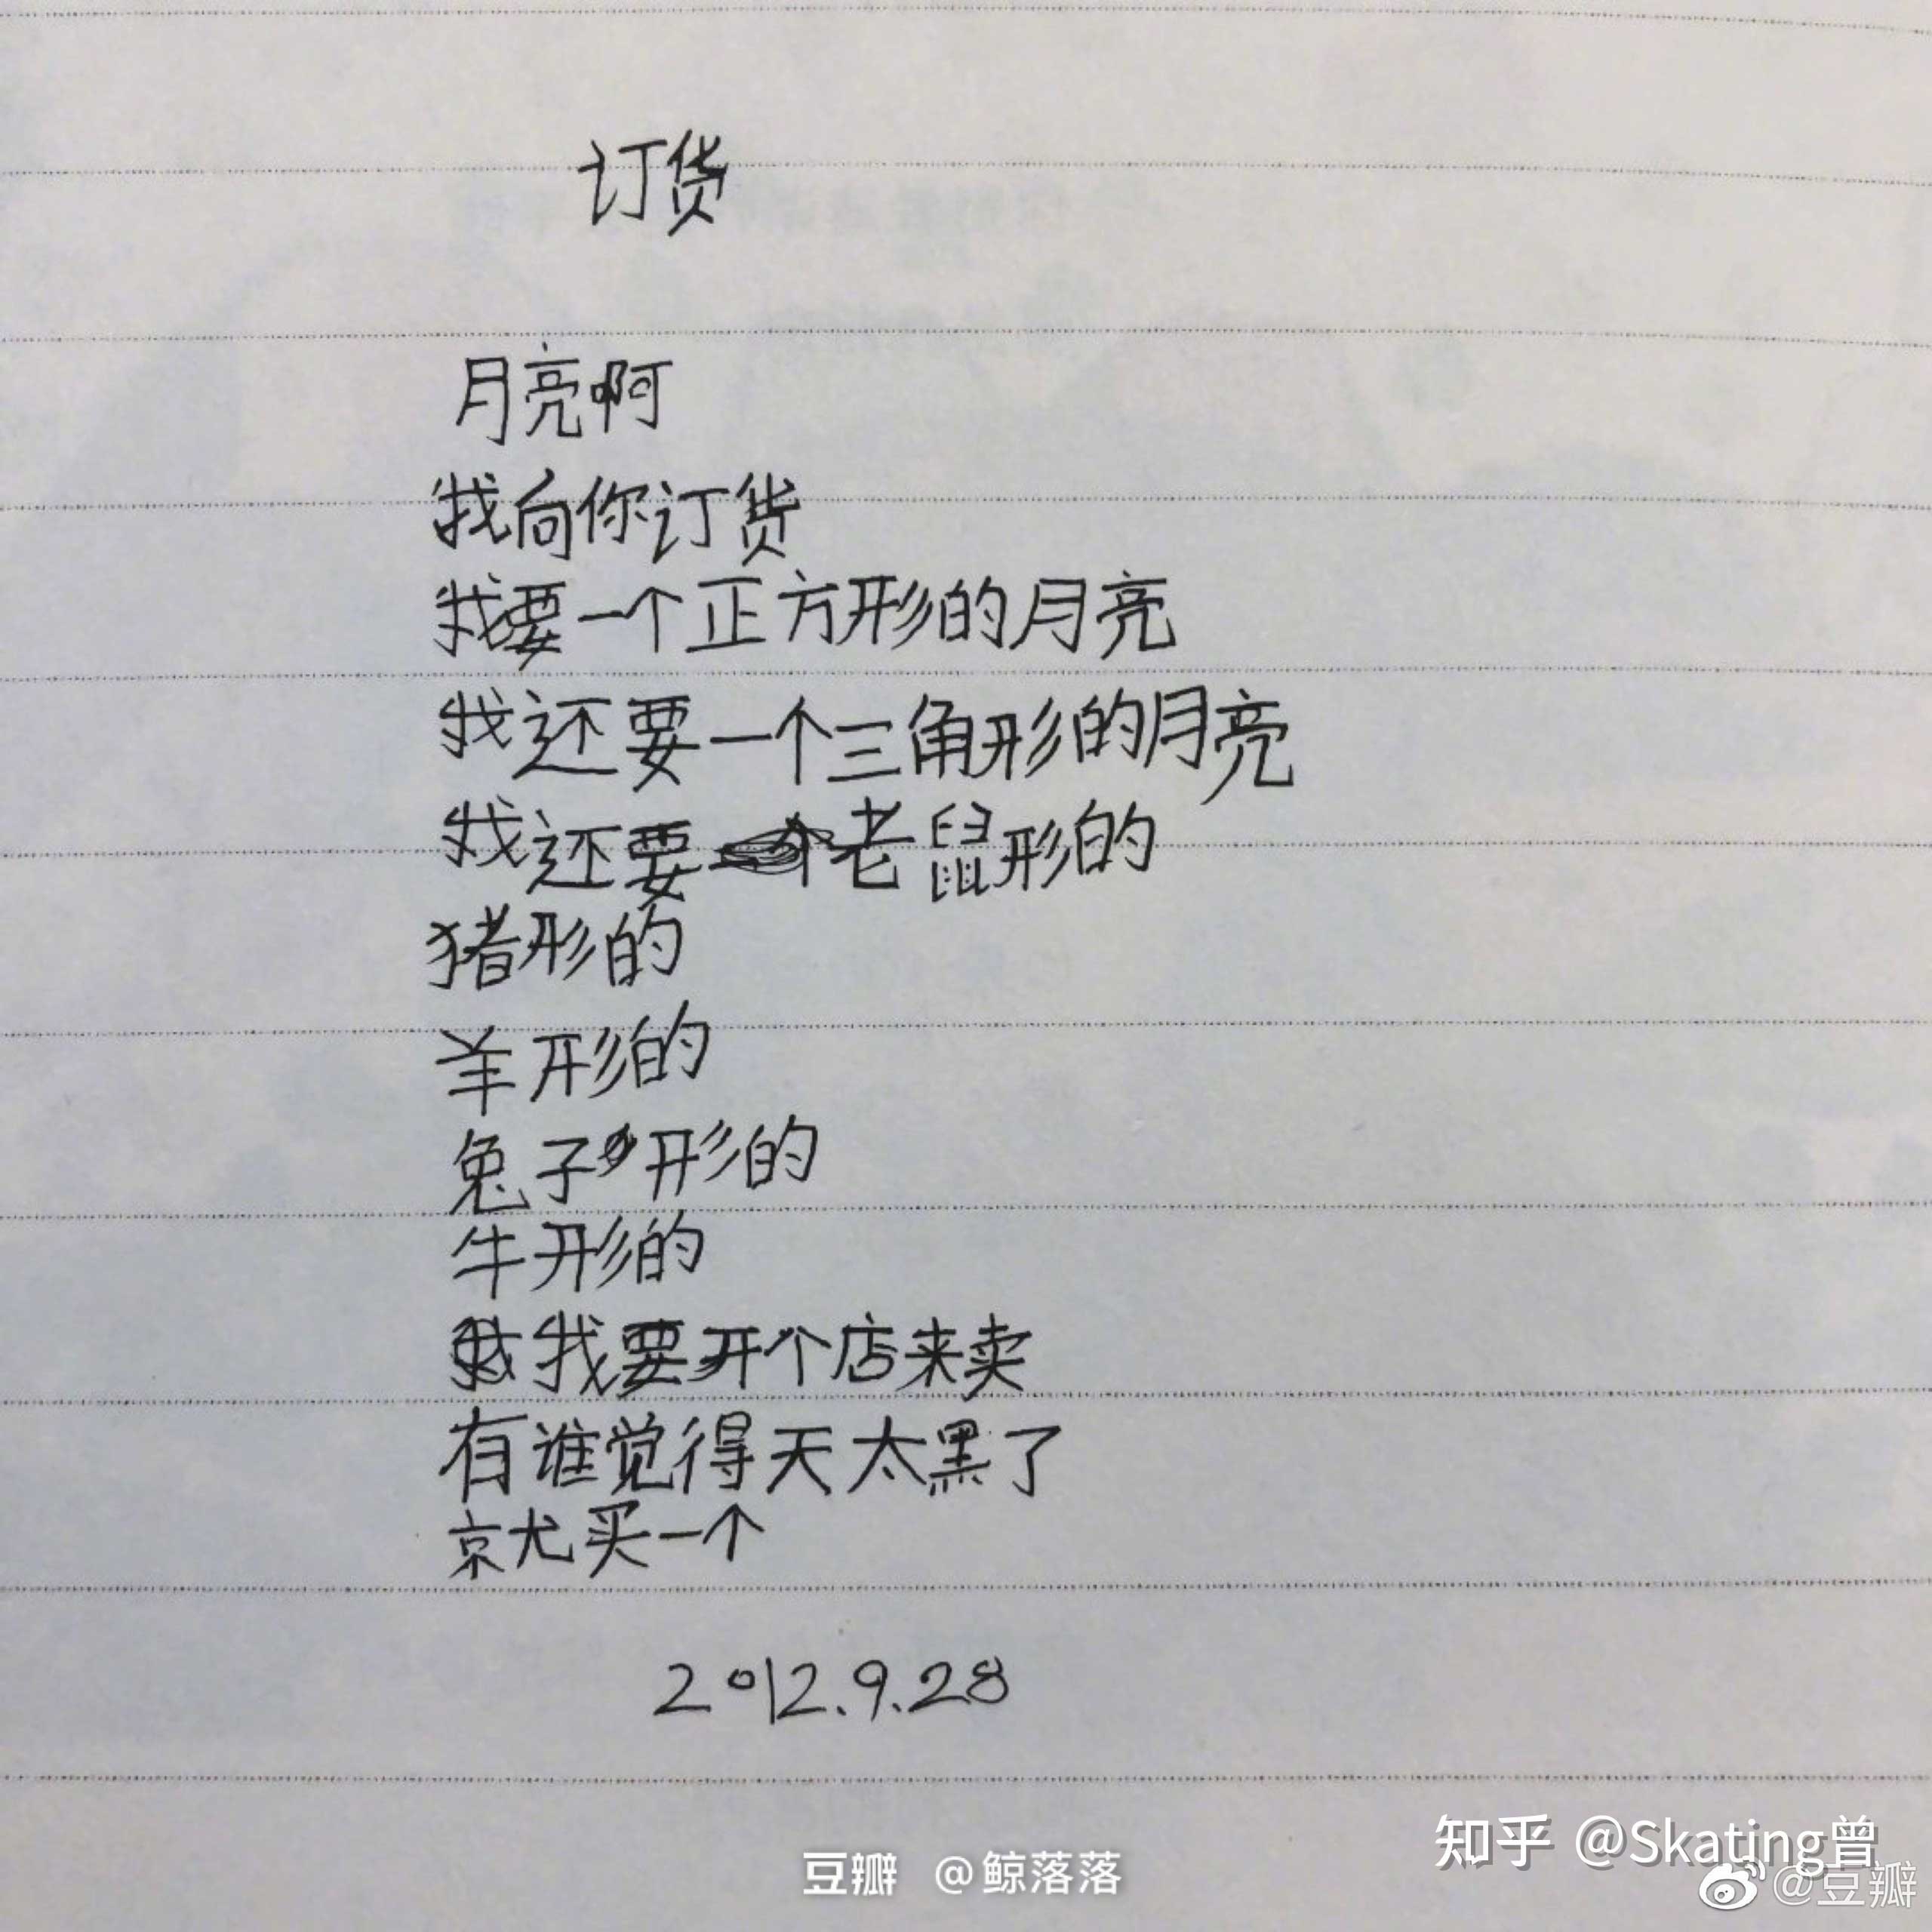 订货
月亮啊
我向你订货
我要一个正方形的月亮
我还要一个三角形的月亮
我还要老鼠形的
猪形的
羊形的
兔子形的
牛形的
我要开个店来卖
有谁觉得天太黑了
就买一个
2012.9.28
知乎 @Skating曾
豆瓣 @鲸落落
@豆瓣